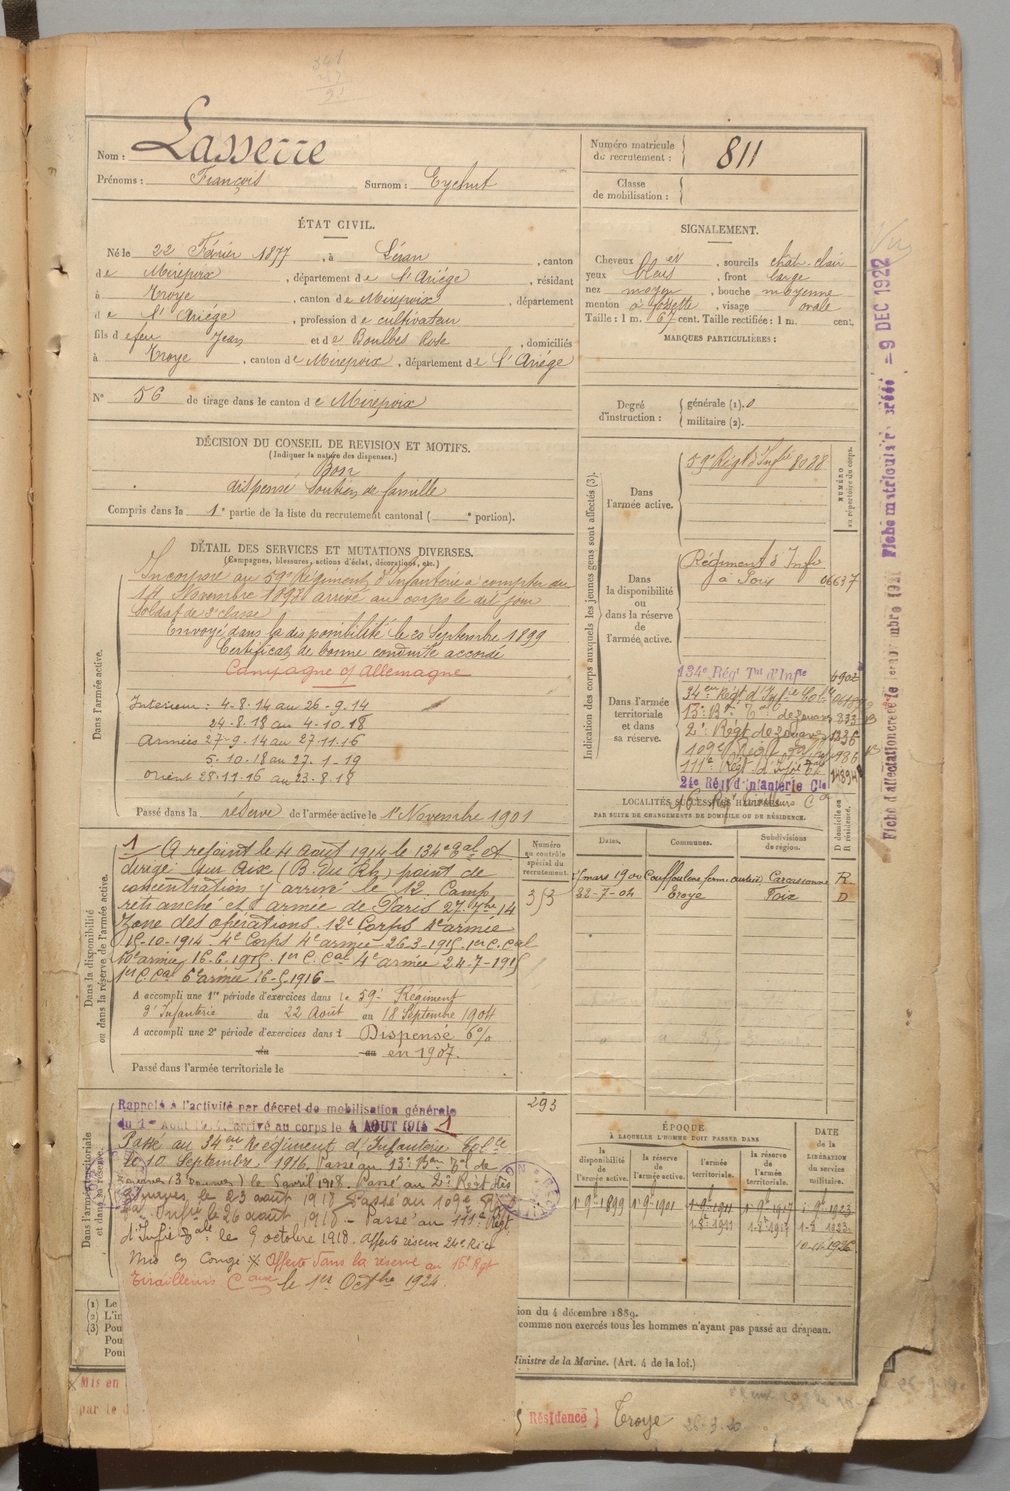 Nom : Lasserre
Prénoms : François Surnom : Eychut
Numéro matricule du recrutement : 811
Classe de mobilisation :
ÉTAT CIVIL.
Né le 22 Février 1877, à Léran, canton
de Mirepoix, département de l'Ariége, résidant
à Troye, canton de Mirepoix, département
de l'Ariége, profession de cultivateur
fils de feu Jean et de Boulbes Rose, domiciliés
à Troye, canton de Mirepoix, département de l'Ariége
N° 56 de tirage dans le canton de Mirepoix
SIGNALEMENT.
Cheveux et, sourcils chât. clair
yeux bleus, front large
nez moyen, bouche moyenne
menton à fossette, visage ovale
Taille : 1 m. 67 cent. Taille rectifiée : 1 m. cent.
MARQUES PARTICULIÈRES :
DÉCISION DU CONSEIL DE REVISION ET MOTIFS.
(Indiquer la nature des dispenses.)
Bon
dispensé soutien de famille
Compris dans la 1e partie de la liste du recrutement cantonal ( e portion).
Degré d'instruction : générale (1). 0
militaire (2).
DÉTAIL DES SERVICES ET MUTATIONS DIVERSES.
(Campagnes, blessures, actions d'éclat, décorations, etc.)
Dans l'armée active.
Incorporé au 59e Régiment d'Infanterie à compter du
Novembre 1898 arrivé au corps le dit jour
Soldat de 2e classe
Envoyé dans la disponibilité le 20 Septembre 1899
Certificat de bonne conduite accordé
Campagne c/ Allemagne
Intérieur : 4-8-14 au 26-9-14
24-8-18 au 4-10-18
Armées 27-9-14 au 27-11-16
5-10-18 au 27-1-19
Orient 28-11-16 au 23-8-18
Passé dans la réserve de l'armée active le 1er Novembre 1901
Indication des corps auxquels les jeunes gens sont affectés (3).
NUMÉRO au répertoire du corps.
Dans l'armée active.
59e Régt d'Infie 8088
Dans la disponibilité ou dans la réserve de l'armée active.
Régiment d'Infie
à Foix 06637
Dans l'armée territoriale et dans sa réserve.
134e Régt Tal d'Infie 4902
34e Régt d'Infie Colle
13e Bon Tal de Zouaves
2e Régt de Zouaves
109e Régt
111e Régt d'Infie
24e Régt d'Infanterie Cle
16e Rgt Tirailleurs
LOCALITÉS SUCCESSIVES HABITÉES
PAR SUITE DE CHANGEMENTS DE DOMICILE OU DE RÉSIDENCE.
Dates. Communes. Subdivisions de région. D domicile ou R résidence.
mars 1900 Couffoulens Carcassonne R
22-7-04 Troye Foix D
Dans la disponibilité ou dans la réserve de l'armée active.
1 - A rejoint le 4 Août 1914 le 134e Tal et
dirigé sur Aix (B. du Rh) point de
concentration y arrivé le 12. Camp
retranché et armée de Paris 27-7bre-14
Zone des opérations. 12e Corps 4e armée
15-10-1914. 4e Corps 4e armée 26-3-1915. 1er C. Cal
10e armée, 16-6-1915. 1er C. Cal 4e armée 24-7-1915
1er C. Cal 6e armée 16-5-1916 -
A accompli une 1re période d'exercices dans le 59e Régiment
d'Infanterie du 22 Août au 18 Septembre 1904
A accompli une 2e période d'exercices dans l Dispensé 6%
du au en 1907.
Passé dans l'armée territoriale le
Numéro au contrôle spécial du recrutement.
353
293
Dans l'armée territoriale et dans sa réserve.
Rappelé à l'activité par décret de mobilisation générale
du 1er AOUT 1914, arrivé au corps le 4 AOUT 1914 1
Passé au 34e Régiment d'Infanterie Colle
le 10 Septembre 1916. Passé au 13e Bon Tal de
Zouaves (3 Zouaves) le 5 avril 1918. Passé au 2e Régt des
Zouaves, le 23 août 1918. Passé au 109e Régt
Tal Infie le 26 août 1918 - Passé au 111e Régt
d'Infie Tale le 9 octobre 1918. Affecté réserve 24e R.I.C.
Mis en Congé X Affecté dans la réserve au 16e Rgt
Tirailleurs le 1er Octbre 1924.
ÉPOQUE
À LAQUELLE L'HOMME DOIT PASSER DANS
la disponibilité de l'armée active. la réserve de l'armée active. l'armée territoriale. la réserve de l'armée territoriale.
DATE de la LIBÉRATION du service militaire.
1-9-1899 1-9-1901 1-9-1911 1-9-1917 1-9-1923
1-8-1911 1-8-1917 1-8-1923
1926
(1) Le
(2) L'in
(3) Pou
Pou
Pou
ion du 4 décembre 1889.
comme non exercés tous les hommes n'ayant pas passé au drapeau.
Ministre de la Marine. (Art. 4 de la loi.)
Mis en
par le d
Résidence Troye 26-3-20
Fiche d'affectation créée le novembre 19
Fiche matriculaire créée = 9 DEC 1922
Vu